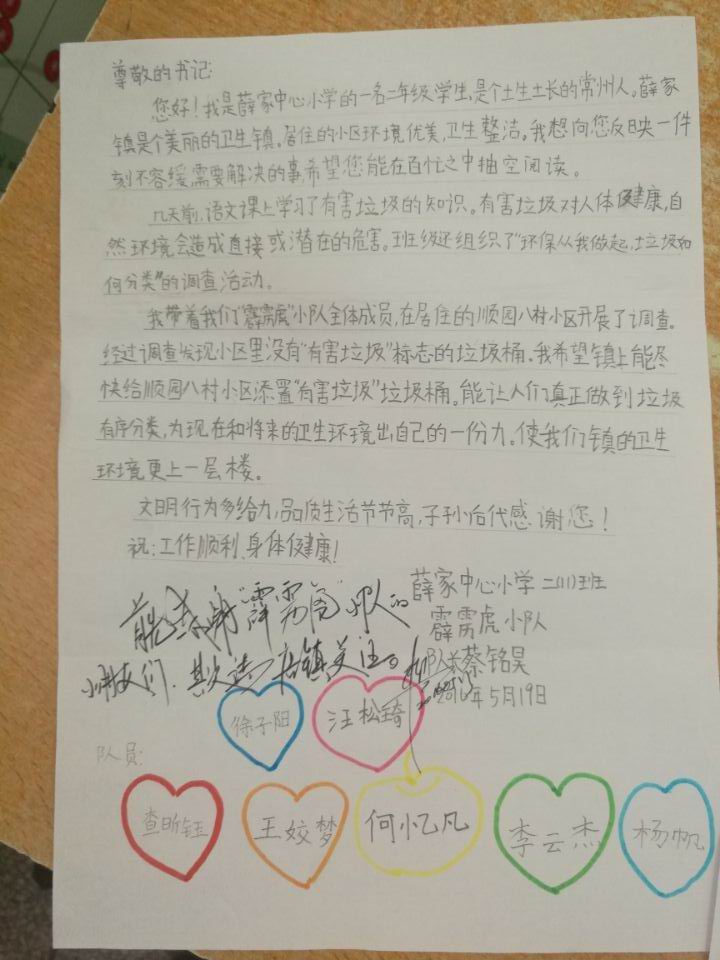 尊敬的书记:
您好!我是薛家中心小学的一名二年级学生,是个土生土长的常州人。薛家
镇是个美丽的卫生镇。居住的小区环境优美,卫生整洁。我想向您反映一件
刻不容缓需要解决的事,希望您能在百忙之中抽空阅读。
几天前,语文课上学习了有害垃圾的知识。有害垃圾对人体健康,自
然环境会造成直接或潜在的危害。班级还组织了“环保从我做起,垃圾如
何分类”的调查活动。
我带着我们“霹雳虎”小队全体成员,在居住的顺园八村小区开展了调查。
经过调查发现小区里没有“有害垃圾”标志的垃圾桶。我希望镇上能尽
快给顺园八村小区添置“有害垃圾”垃圾桶。能让人们真正做到垃圾
有序分类,为现在和将来的卫生环境出自己的一份力。使我们镇的卫生
环境更上一层楼。
文明行为多给力,品质生活节节高,子孙后代感谢您!
祝:工作顺利,身体健康!
薛家中心小学 二(11)班
霹雳虎小队
队长蔡铭昊
2016年5月19日
“霹雳虎”小队的
小朋友们
徐子阳
汪松琦
队员:
查昕钰
王姣梦
何忆凡
李云杰
杨帆